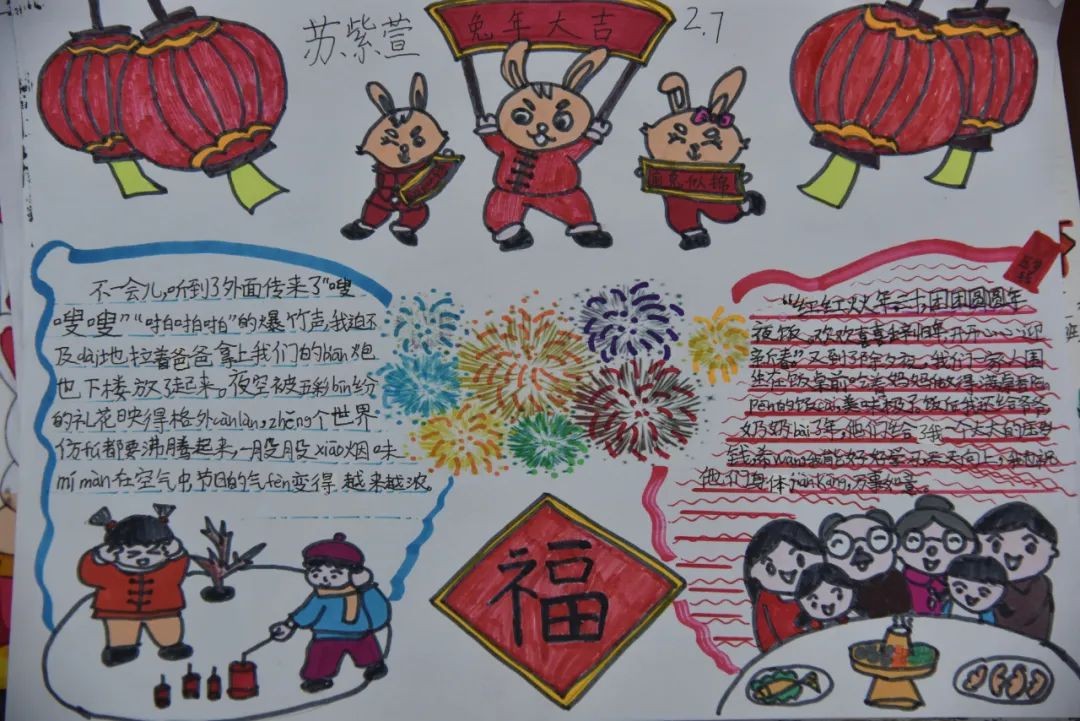 苏紫萱
兔年大吉
2.7
不一会儿,听到了外面传来了“嗖
嗖嗖”“啪啪啪”的爆竹声,我迫不
及dài地拉着爸爸拿上我们的biān炮
也下楼放了起来。夜空被五彩bīn纷
的礼花映得格外cànlàn,zhěng个世界
仿佛都要沸腾起来,一股股xiāo烟味
mí màn在空气中,节日的气fēn变得越来越浓。
“红红火火年三十,团团圆圆年
夜饭。欢欢喜喜辞旧年,开开心心迎
新春”又到了除夕夜,我们一家人围
坐在饭桌前吃着妈妈做得满桌香pēn
pēn的饭cài,美味极了。饭后我还给爷爷
奶奶bài了年,他们给了我一个大大的压岁
钱,希wàng我能好好学习天天向上,我也祝
他们身体jiànkāng,万事如意。
福